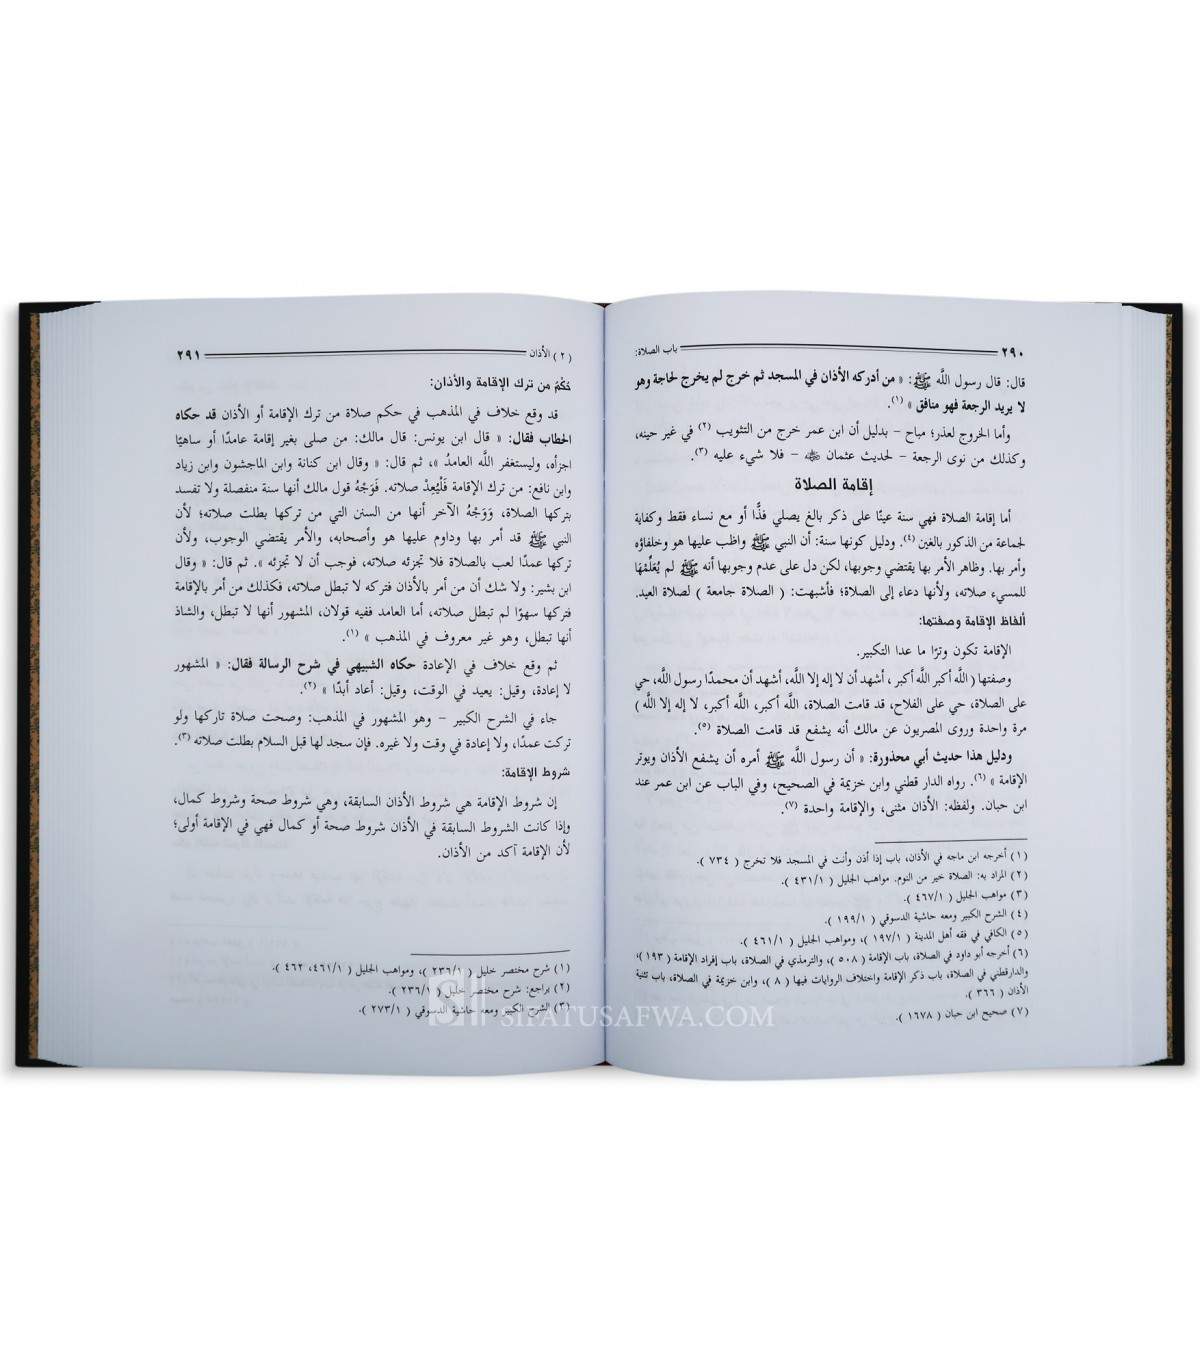 ٢٩٠ باب الصلاة:
قال: قال رسول اللَّه ﷺ: « من أدركه الأذان في المسجد ثم خرج لم يخرج لحاجة وهو
لا يريد الرجعة فهو منافق » (١).
وأما الخروج لعذر؛ مباح – بدليل أن ابن عمر خرج من التثويب (٢) في غير حينه،
وكذلك من نوى الرجعة – لحديث عثمان ﷺ – فلا شيء عليه (٣).
إقامة الصلاة
أما إقامة الصلاة فهي سنة عينًا على ذكر بالغ يصلي فذًّا أو مع نساء فقط وكفاية
لجماعة من الذكور بالغين (٤). ودليل كونها سنة: أن النبي ﷺ واظب عليها هو وخلفاؤه
وأمر بها. وظاهر الأمر بها يقتضي وجوبها، لكن دل على عدم وجوبها أنه ﷺ لم يُعَلِّمْهَا
للمسيء صلاته، ولأنها دعاء إلى الصلاة؛ فأشبهت: ( الصلاة جامعة ) لصلاة العيد.
ألفاظ الإقامة وصفتها:
الإقامة تكون وترًا ما عدا التكبير.
وصفتها ( اللَّه أكبر اللَّه أكبر ، أشهد أن لا إله إلا اللَّه، أشهد أن محمدًا رسول اللَّه، حي
على الصلاة، حي على الفلاح، قد قامت الصلاة، اللَّه أكبر، اللَّه أكبر، لا إله إلا اللَّه )
مرة واحدة وروى المصريون عن مالك أنه يشفع قد قامت الصلاة (٥).
ودليل هذا حديث أبي محذورة: « أن رسول اللَّه ﷺ أمره أن يشفع الأذان ويوتر
الإقامة » (٦). رواه الدار قطني وابن خزيمة في الصحيح، وفي الباب عن ابن عمر عند
ابن حبان. ولفظه: الأذان مثنى، والإقامة واحدة (٧).
(١) أخرجه ابن ماجه في الأذان، باب إذا أذن وأنت في المسجد فلا تخرج ( ٧٣٤ ).
(٢) المراد به: الصلاة خير من النوم. مواهب الجليل ( ٤٣١/١ ).
(٣) مواهب الجليل ( ٤٦٧/١ ).
(٤) الشرح الكبير ومعه حاشية الدسوقي ( ١٩٩/١ ).
(٥) الكافي في فقه أهل المدينة ( ١٩٧/١ )، ومواهب الجليل ( ٤٦١/١ ).
(٦) أخرجه أبو داود في الصلاة، باب الإقامة ( ٥٠٨ )، والترمذي في الصلاة، باب إفراد الإقامة ( ١٩٣ )،
والدارقطني في الصلاة، باب ذكر الإقامة واختلاف الروايات فيها ( ٨ )، وابن خزيمة في الصلاة، باب تثنية
الأذان ( ٣٦٦ ).
(٧) صحيح ابن حبان ( ١٦٧٨ ).
( ٢ ) الأذان ٢٩١
حُكْمُ من ترك الإقامة والأذان:
قد وقع خلاف في المذهب في حكم صلاة من ترك الإقامة أو الأذان قد حكاه
الحطاب فقال: « قال ابن يونس: قال مالك: من صلى بغير إقامة عامدًا أو ساهيًا
اجزأه، وليستغفر اللَّه العامدُ »، ثم قال: « وقال ابن كنانة وابن الماجشون وابن زياد
وابن نافع: من ترك الإقامة فَلْيُعِدْ صلاته. فَوَجْهُ قول مالك أنها سنة منفصلة ولا تفسد
بتركها الصلاة، وَوَجْهُ الآخر أنها من السنن التي من تركها بطلت صلاته؛ لأن
النبي ﷺ قد أمر بها وداوم عليها هو وأصحابه، والأمر يقتضي الوجوب، ولأن
تركها عمدًا لعب بالصلاة فلا تجزئه صلاته، فوجب أن لا تجزئه ». ثم قال: « وقال
ابن بشير: ولا شك أن من أمر بالأذان فتركه لا تبطل صلاته، فكذلك من أمر بالإقامة
فتركها سهوًا لم تبطل صلاته، أما العامد ففيه قولان، المشهور أنها لا تبطل، والشاذ
أنها تبطل، وهو غير معروف في المذهب » (١).
ثم وقع خلاف في الإعادة حكاه الشبيهي في شرح الرسالة فقال: « المشهور
لا إعادة، وقيل: يعيد في الوقت، وقيل: أعاد أبدًا » (٢).
جاء في الشرح الكبير – وهو المشهور في المذهب: وصحت صلاة تاركها ولو
تركت عمدًا، ولا إعادة في وقت ولا غيره. فإن سجد لها قبل السلام بطلت صلاته (٣).
شروط الإقامة:
إن شروط الإقامة هي شروط الأذان السابقة، وهي شروط صحة وشروط كمال،
وإذا كانت الشروط السابقة في الأذان شروط صحة أو كمال فهي في الإقامة أولى؛
لأن الإقامة آكد من الأذان.
(١) شرح مختصر خليل ( ٢٣٦/١ )، ومواهب الجليل ( ٤٦١/١، ٤٦٢ ).
(٢) يراجع: شرح مختصر خليل ( ٢٣٦/١ ).
(٣) الشرح الكبير ومعه حاشية الدسوقي ( ٢٧٣/١ ).
SIFATUSAFWA.COM